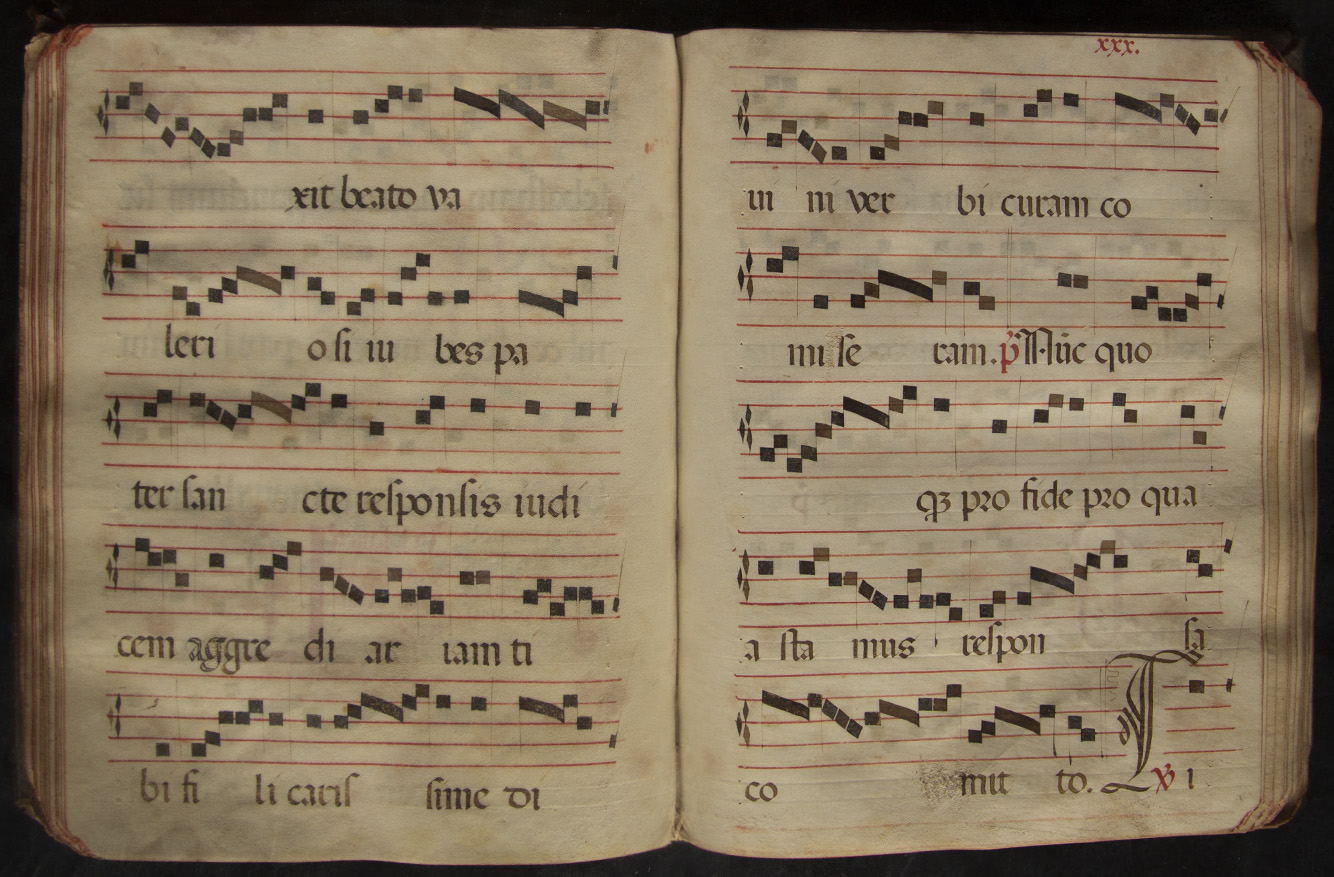 xit beato va
leri o si iu bes pa
ter san cte responsis iudi
cem aggre di ar iam ti
bi fi li caris sime di
xxx.
ui ni ver bi curam co
mi se ram. p̃ Nũc quo
qꝫ pro fide pro qua
a sta mus respon sa
co mit to. ℣ I